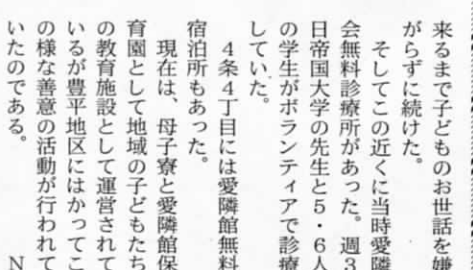 来るまで子どものお世話を嫌
がらずに続けた。
そしてこの近くに当時愛隣
会無料診療所があった。週3
日帝国大学の先生と5・6人
の学生がボランティアで診療
していた。
4条4丁目には愛隣館無料
宿泊所もあった。
現在は、母子寮と愛隣館保
育園として地域の子どもたち
の教育施設として運営されて
いるが豊平地区にはかってこ
の様な善意の活動が行われて
いたのである。
N